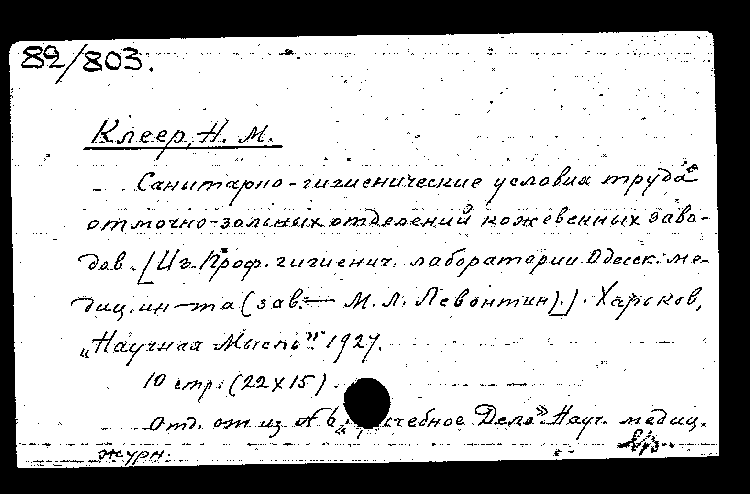 82/803.
Клеер, Н. М.
Санитарно-гигиенические условия труда
отмочно-зольных отделений кожевенных заво-
дов. [Из Проф. гигиенич. лаборатории Одесск. ме-
диц. ин-та (зав. — М. Л. Левонтин).]. Харьков,
„Научная Мысль". 1927.
10 стр. (22х15).
Отд. от из № 6 „ ебное Дело". Науч. медиц.
журн.